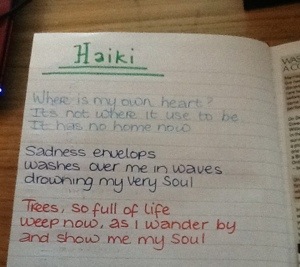 Haiki
Where is my own heart?
It's not where it use to be
It has no home now
Sadness envelops
washes over me in waves
drowning my very soul
Trees, so full of life
weep now, as I wander by
and show me my soul